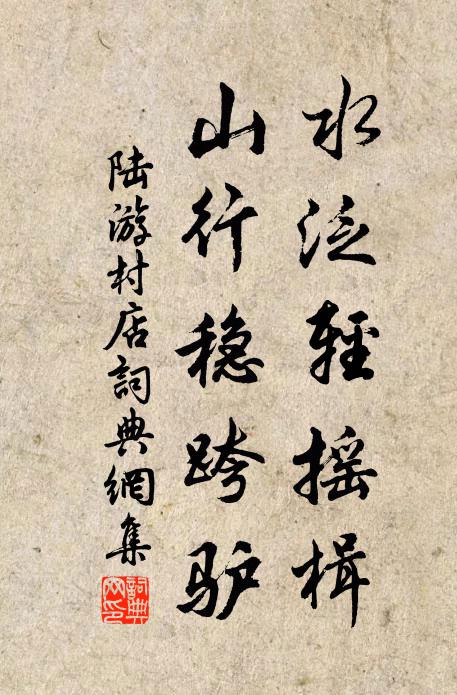 水泛輕摇楫
山行稳跨驴
陆游村店詞典網集
詞典
网印